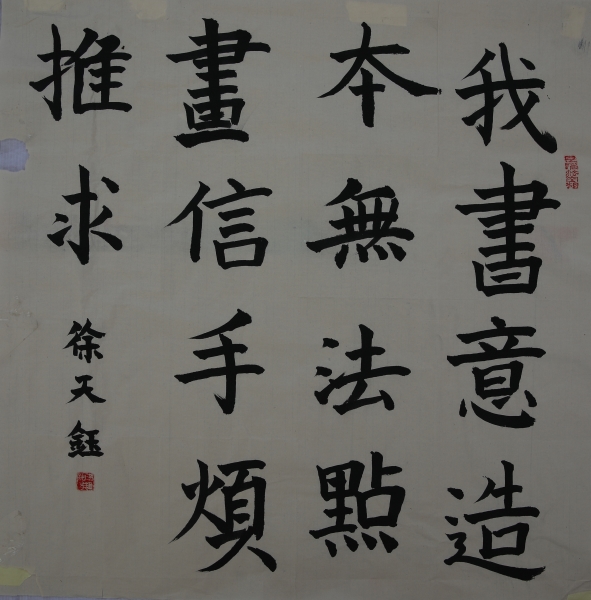 我書意造
本無法點
畫信手煩
推求
徐天鈺